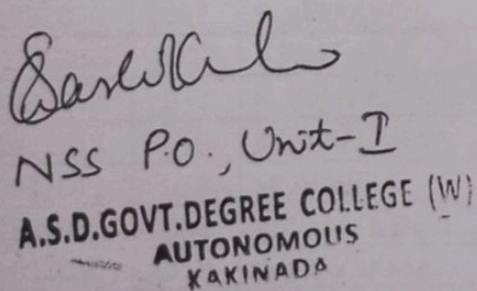 NSS P.O., Unit-I
A.S.D.GOVT.DEGREE COLLEGE (W)
AUTONOMOUS
KAKINADA